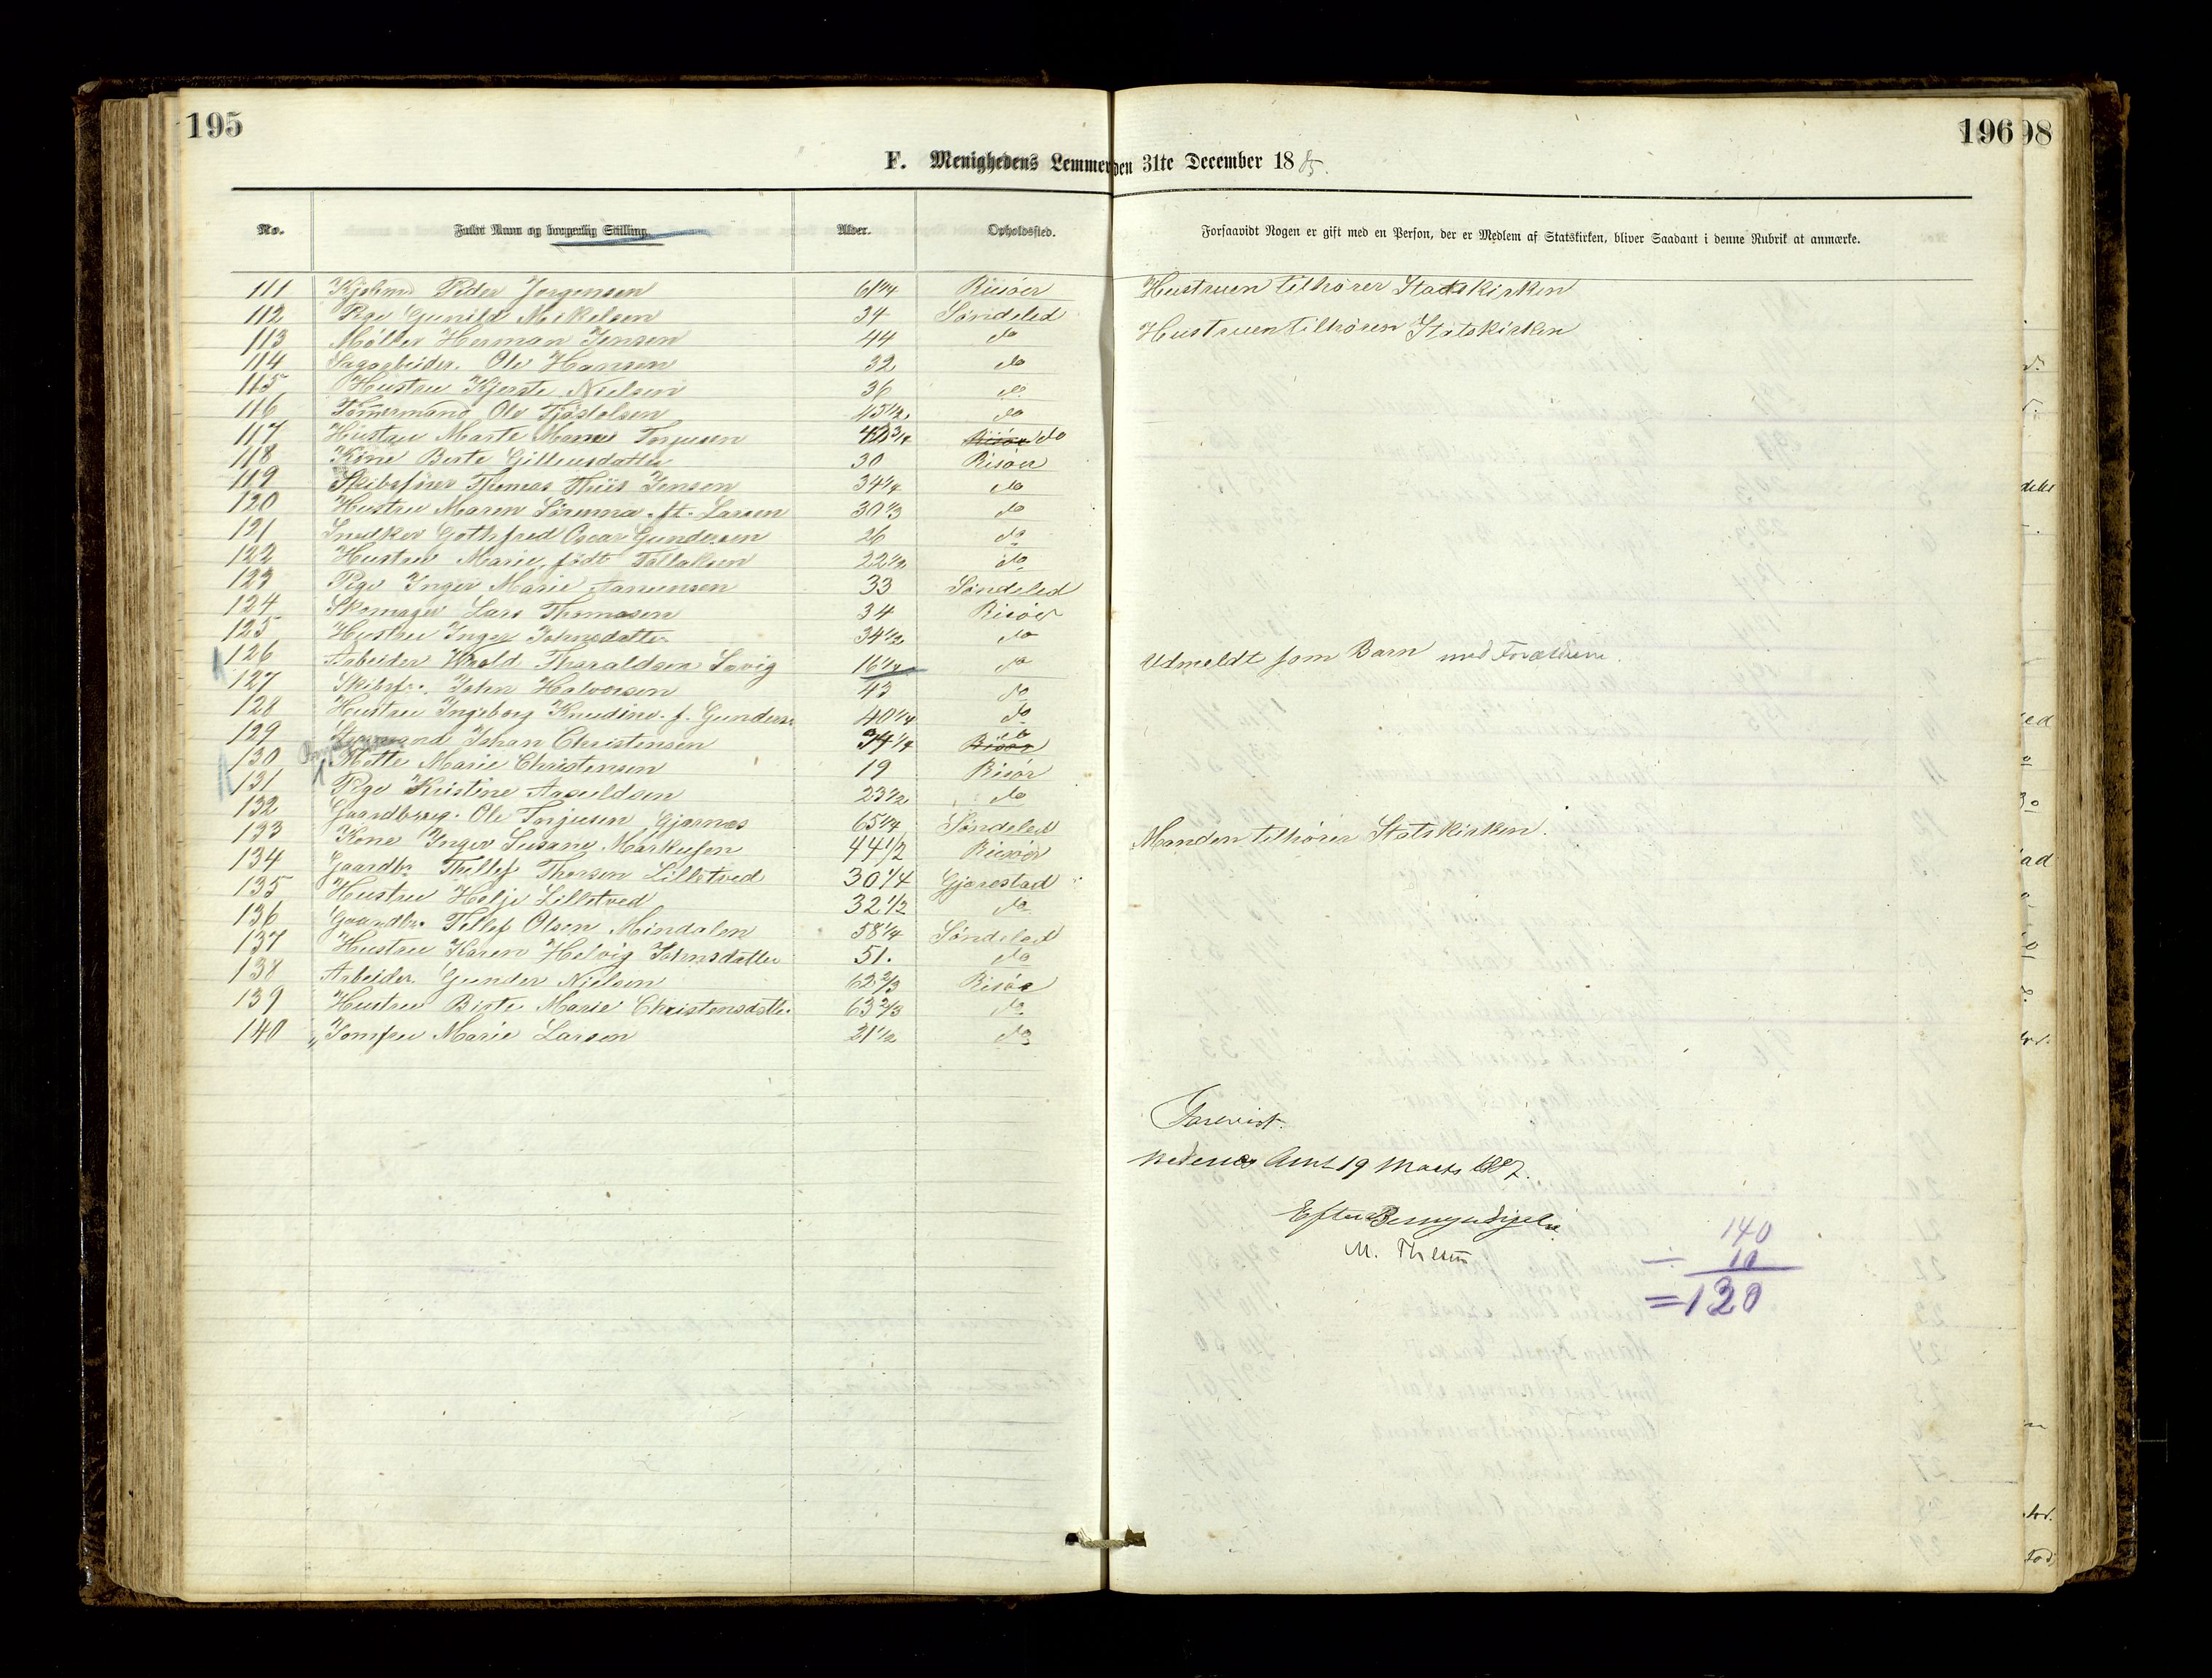 195
196
98
F. Menighedens Lemmer den 31te December 1885.
No. Fuldt Navn og borgerlig Stilling. Alder. Opholdssted. Forsaavidt Nogen er gift med en Person, der er Medlem af Statskirken, bliver Saadant i denne Rubrik at anmærke.
111 Kjøbmd Peder Jorgensen 61 1/4 Risöer Hustruen tilhører Stadskirken
112 Pige Gunild Mikelsen 34 Søndeled
113 Möller Herman Jensen 44 do Hustruen tilhören Statskirken
114 Sagarbeider. Ole Hansen 32 do
115 Hustru Kjerste Nielsen 36 do
116 Tömmermand Ole Tjöstolsen 45 1/2 do
117 Hustru Marte Marie Torjusen 40 3/4 Risöer do
118 Kone Berte Gilleusdatter 30 Risöer
119 Skibsfører Thomas Thiis Jensen 34 1/4 do
120 Hustru Maren Sirema. ft. Larsen 30 1/3 do
121 Snedker Gothfred Oscar Gundersen 26 do
122 Hustru Marie, födt Tellaksen 22 1/2 do
123 Pige Inger Marie Aanensen 33 Søndeled
124 Skomager Lars Thomasen 34 Risöer
125 Hustru Inger Johnsdatter 34 1/2 do
126 Arbeider Harald Tharaldsen Lavig 16 1/4 do Udmeldt som Barn med Forældrene.
127 Skibsfr. John Halvorsen 43 do
128 Hustru Ingeborg Knudine. f. Gunders. 40 1/4 do
129 Styrmand Johan Christensen 34 1/4 Risör do
130 Mette Marie Christensen 19 Risör
131 Pige Kristine Aanuldsen 23 1/2 do
132 Gaardbrug. Ole Torjusen Gjernes 65 1/4 Søndeled
133 Kone Inger Susane Markusen 44 1/2 Risöer Manden tilhörer Statskirken.
134 Gaardbr. Thellef Thorsen Lilletved 30 1/4 Gjerestad
135 Hustru Helje Lilletved 32 1/2 do
136 Gaardbr. Tellef Olsen Mindalen 58 1/4 Søndeled
137 Hustru Karen Helvig Johnsdatter 51. do
138 Arbeider. Gunder Nielsen 62 2/3 Risör
139 Hustru Birte Marie Christensdatter. 63 2/3 do
140 Jomfru Marie Larsen 21 1/2 do
Forevist.
Nedenæs Amt 19 Marts 1887.
Efter Bemyndigelse
140
÷ 10
=130